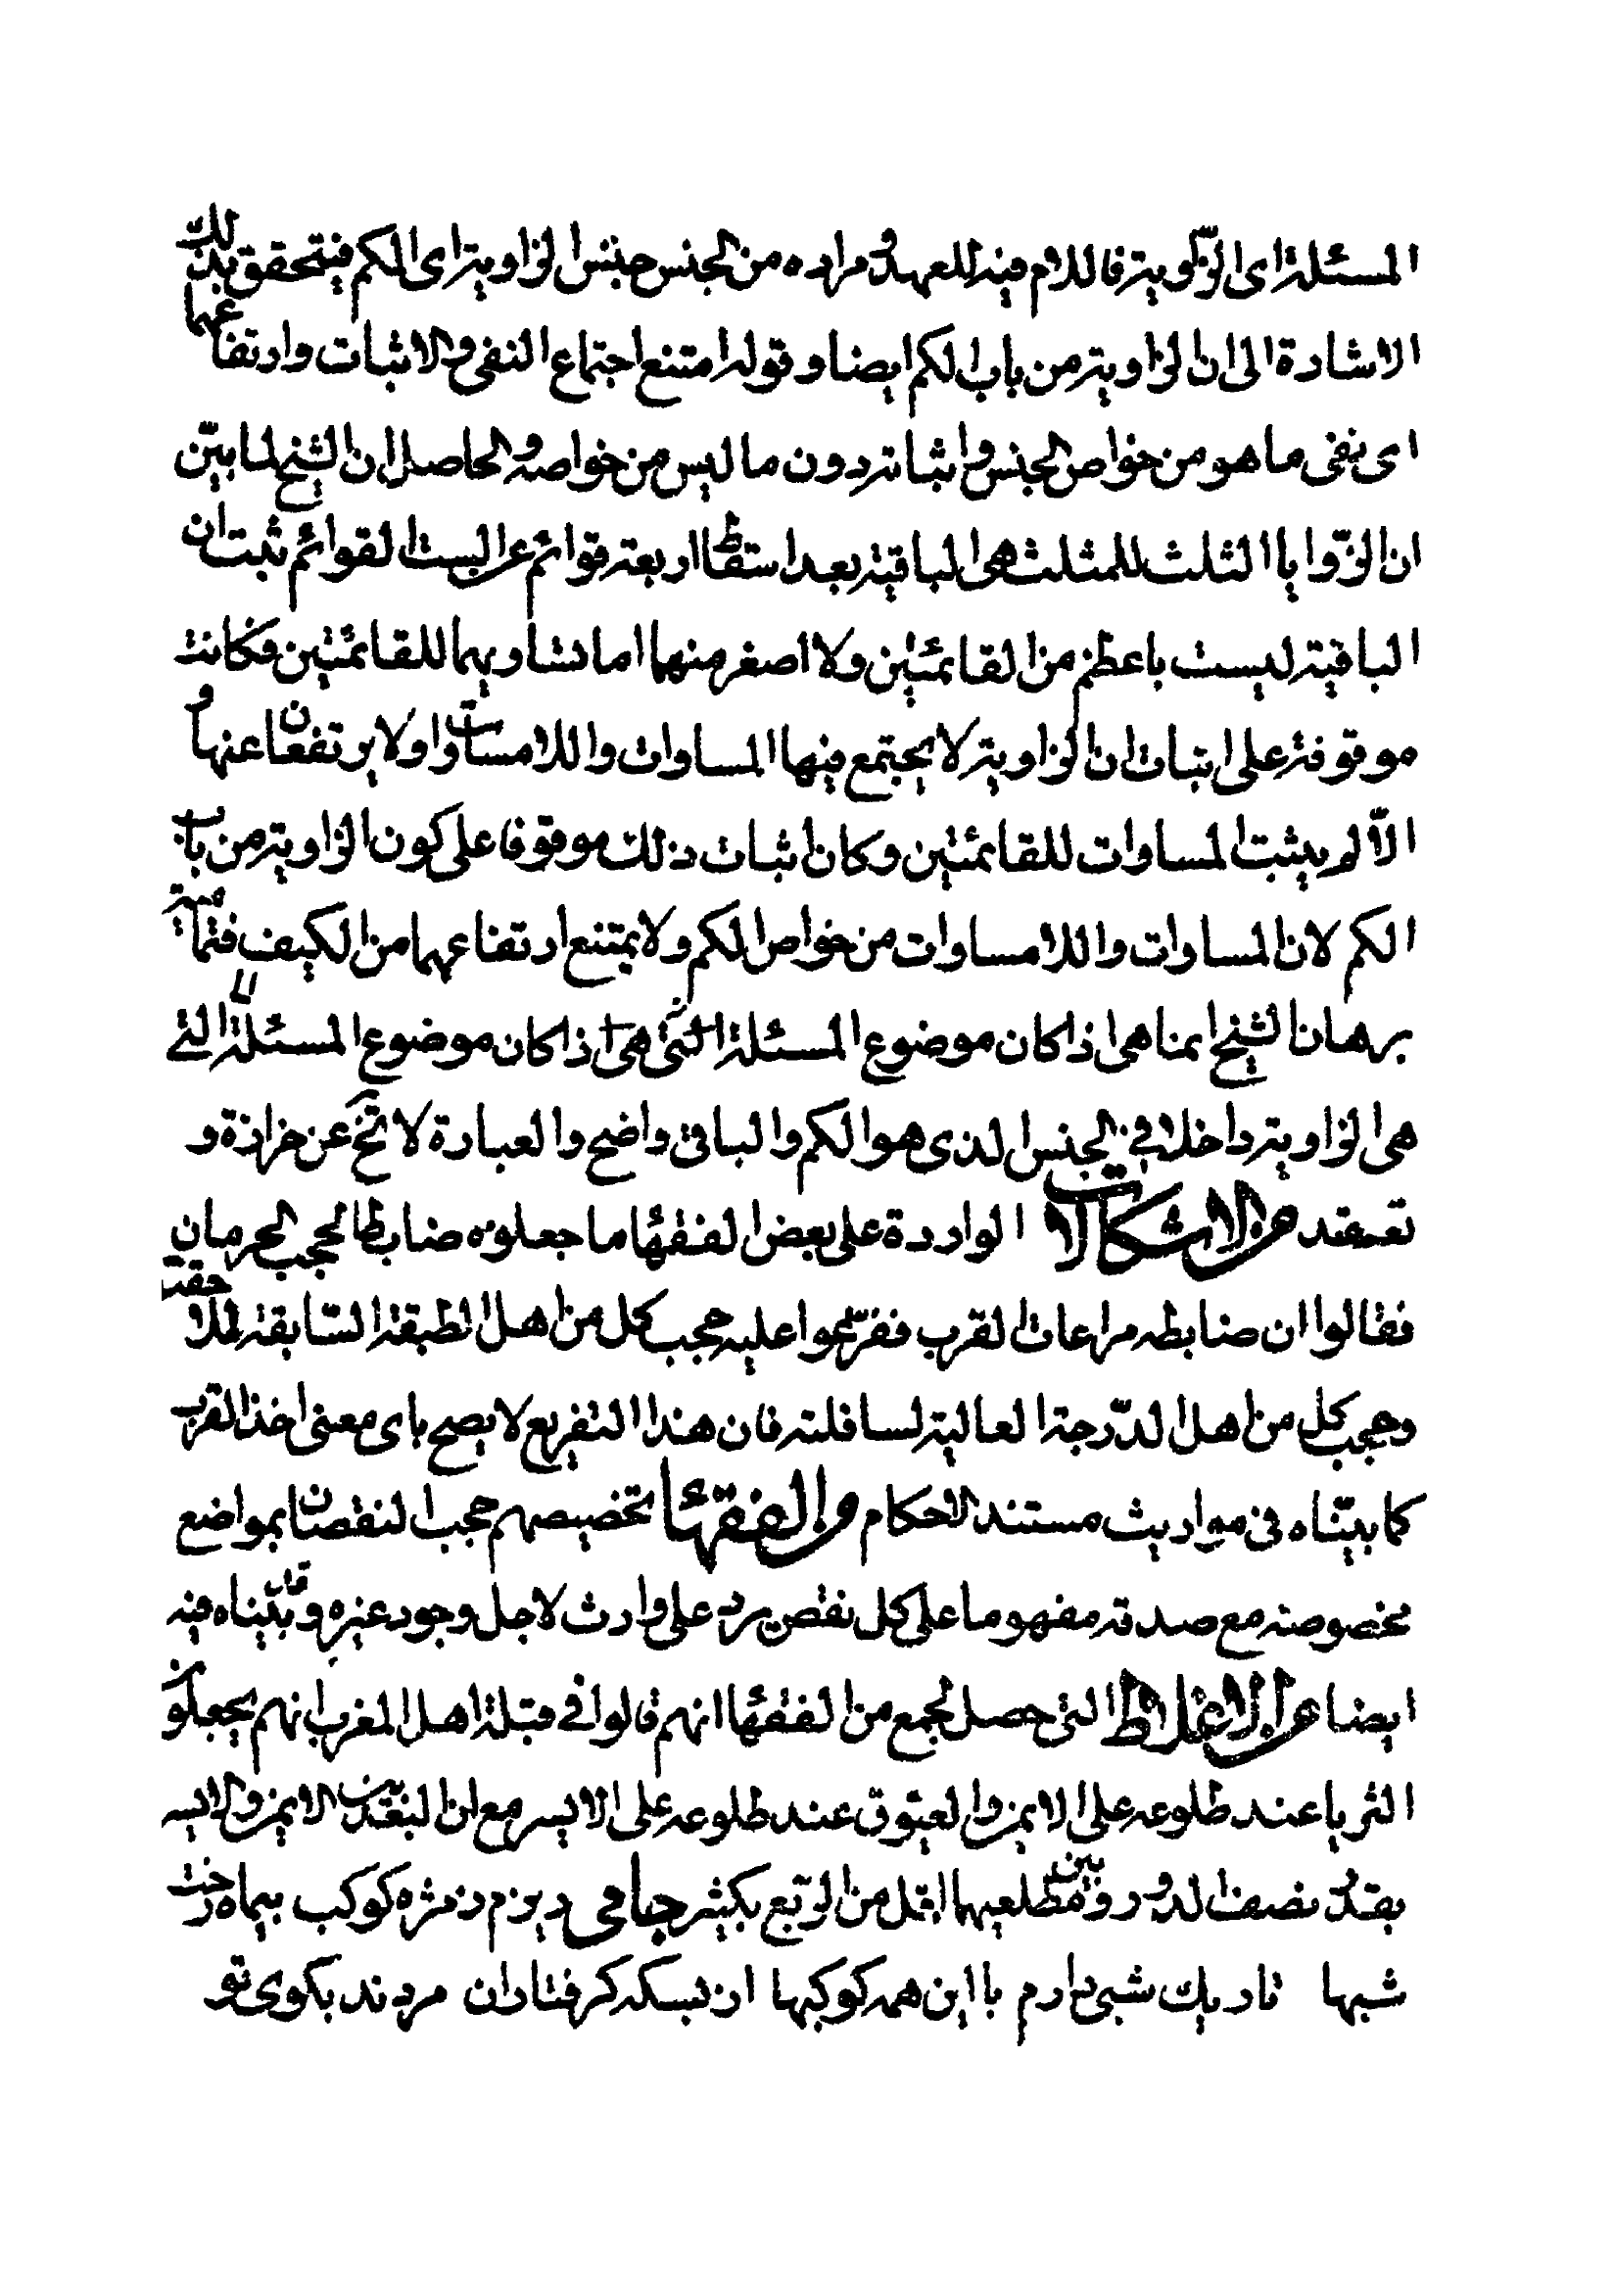 المسئلة اى الزّاوية فاللام فيه للعهد و مراده من الجنس جنس الزاوية اى الكم فيتحقق بذلك
الاشارة الى ان الزاوية من باب الكم ايضا و قوله امتنع اجتماع النفى و الاثبات و ارتفاعهما
اى نفى ما هو من خواص الجنس و اثباته دون ما ليس من خواصه و الحاصل ان الشيخ لما بيّن
ان الزّوايا الثلث للمثلث هى الباقية بعد اسقاط اربعة قوائم عن الست القوائم ثبت ان
الباقية ليست باعظم من القائمتين ولا اصغر منهما اما تساويهما للقائمتين فكانت
موقوفة على اثبات ان الزاوية لا يجتمع فيها المساوات واللامساوات ولا يرتفعان عنها و
الّا لم يثبت المساوات للقائمتين و كان اثبات ذلك موقوفا على كون الزاوية من باب
الكم لان المساوات واللامساوات من خواص الكم ولا يمتنع ارتفاعهما من الكيف فتمامية
برهان الشيخ انما هى اذا كان موضوع المسئلة التى هى اذا كان موضوع المسئلة التى
هى الزاوية داخلا فى الجنس الذى هو الكم والباقى واضح والعبارة لا تخ عن حزازة و
تعقيد من الاشكالات الواردة على بعض الفقهاء ما جعلوه ضابطا لحجب الحرمان
فقالوا ان ضابطه مراعات القرب ففرّعوا عليه حجب كل من اهل الطبقة السّابقة للاحقة
و حجب كل من اهل الدّرجة العالية لسافلته فان هذا التفريع لا يصح باى معنى اخذ القرب
كما بيّنّاه فى مواريث مستند الاحكام و الفقهاء تخصيصهم حجب النقصان بمواضع
مخصوصة مع صدقه مفهوما على كل نقص يرد على وارث لاجل وجود غيره و قد بيّناه فيه
ايضا من الاغلاط التى حصل لجمع من الفقهاء انهم قالوا فى قبلة اهل المغرب انهم يجعلون
الثريا عند طلوعه على الايمن و العيوق عند طلوعه على الايسر مع ان البعد بين الايمن و الايسر
بقدر نصف الدور و بين مطلعيهما اقل من الربع بكثير جامى ريزم ز مژه كوكب بيماه رخت
شبها تاريك شبى دارم با اين همه كوكبها از بسكه گرفتاران مردند بكوى تو